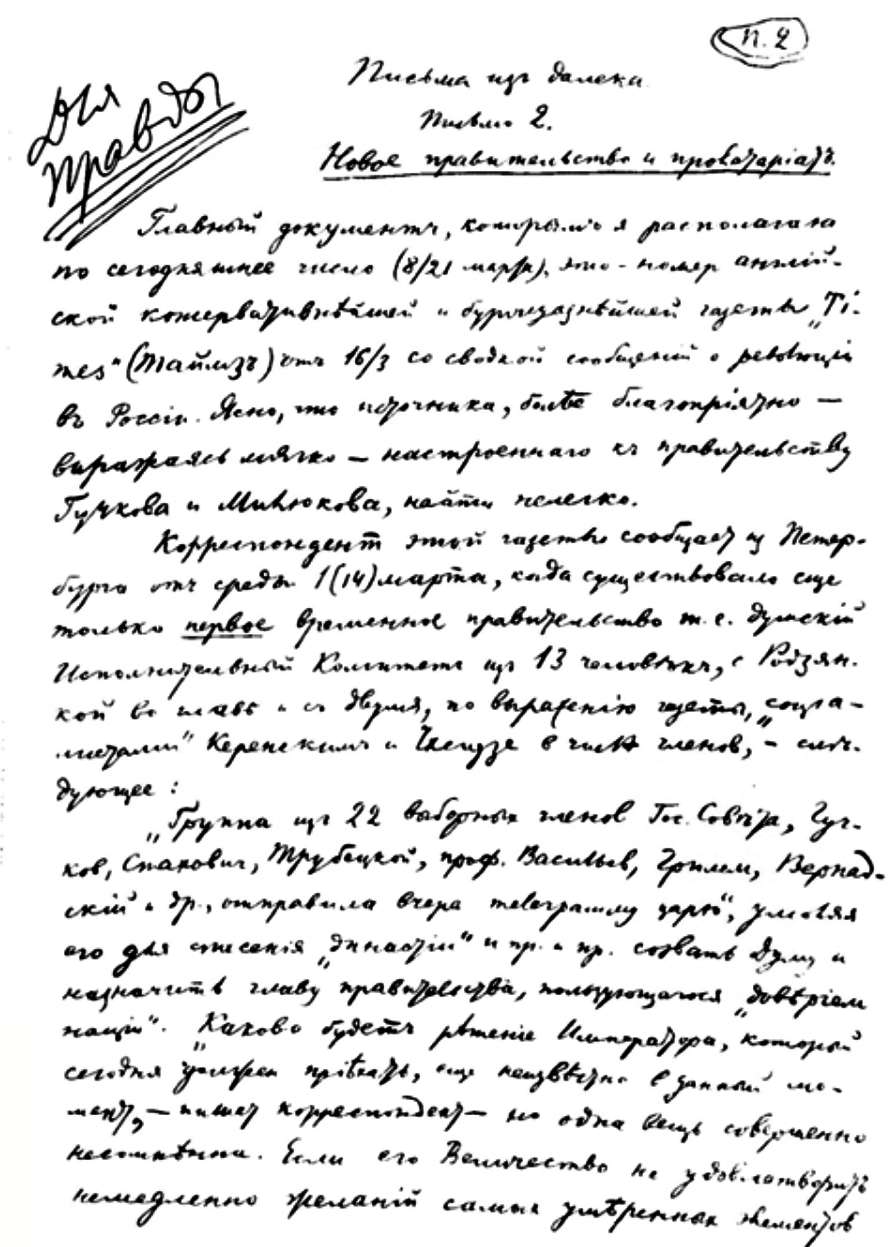 п. 2
Для
Правды
Письма из далека
Письмо 2.
Новое правительство и пролетаріатъ.
Главный документъ, которымъ я располагаю
по сегодняшнее число (8/21 марта), это – номер англій-
ской консервативнѣйшей и буржуазнѣйшей газеты „Ti-
mes“ (Таймзъ) отъ 16/3 со сводкой сообщеній о революціи
въ Россіи. Ясно, что источника, болѣе благопріятно —
выражаясь мягко — настроеннаго къ правительству
Гучкова и Милюкова, найти нелегко.
Корреспондент этой газеты сообщает из Петер-
бурга отъ среды 1 (14) марта, когда существовало еще
только первое временное правительство т. е. думскій
Исполнительный Комитетъ изъ 13 человѣкъ, с Родзян-
кой во главѣ и съ двумя, по выраженію газеты, „соціа-
листами“ Керенскимъ и Чхеидзе в числѣ членов, – слѣ-
дующее:
„Группа изъ 22 выборных членов Гос. Совѣта, Гуч-
ков, Стахович, Трубецкой, проф. Васильев, Гримм, Вернад-
скій и др., отправила вчера телеграмму царю“, умоляя
его для спасенія „династіи“ и пр. и пр. созвать Думу и
назначить главу правительства, пользующагося „довѣріем
націи“. „Каково будетъ рѣшеніе Императора, который
сегодня должен пріѣхать, еще неизвѣстно в данный мо-
мент, – пишет корреспондент – но одна вещь совершенно
несомнѣнна. Если его Величество не удовлетворитъ
немедленно желаній самых умѣренных элементов